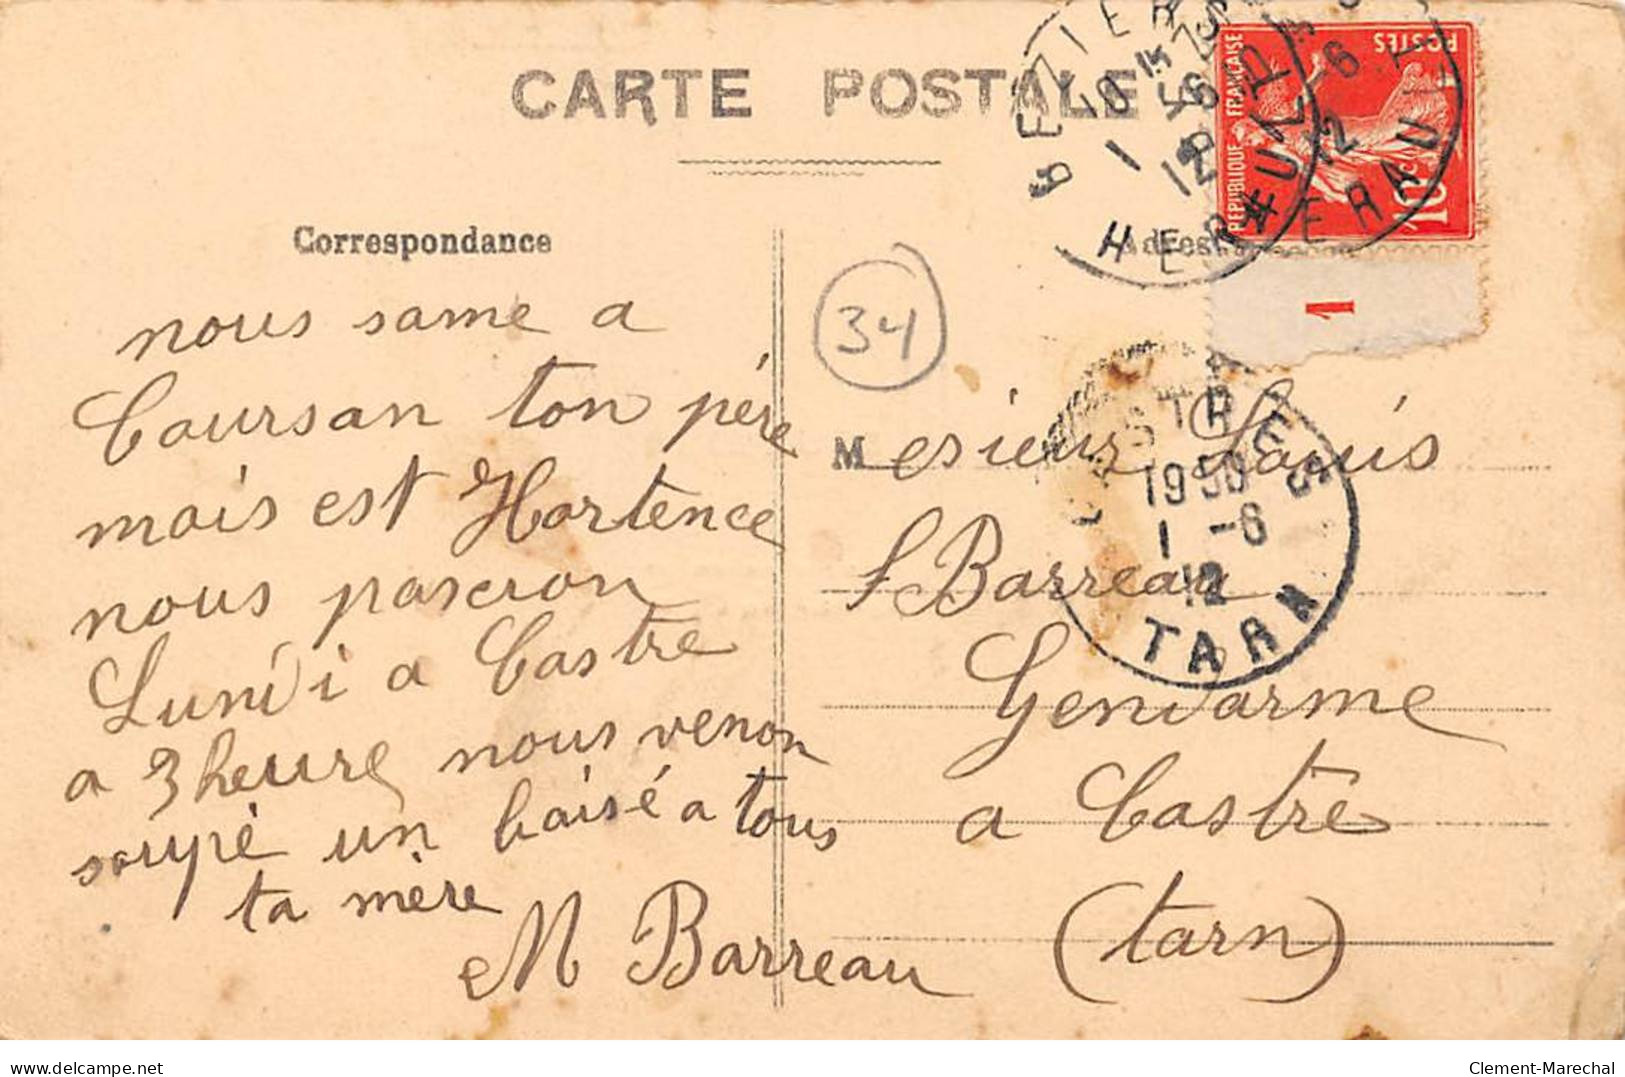 CARTE POSTALE
Correspondance
nous some a
Coursan ton père
mais est Hortence
nous paseron
Lundi a Castre
a 3 heure nous venon
soupé un baisé a tous
ta mère
M Barreau
34
BEZIERS
HERAULT
REPUBLIQUE FRANÇAISE
POSTES
10c
1
CASTRES
1950
1 -6
12
TARN
Mesieur Louis
Barreau
Gendarme
a Castre
(tarn)
delcampe.net
Clement-Marechal